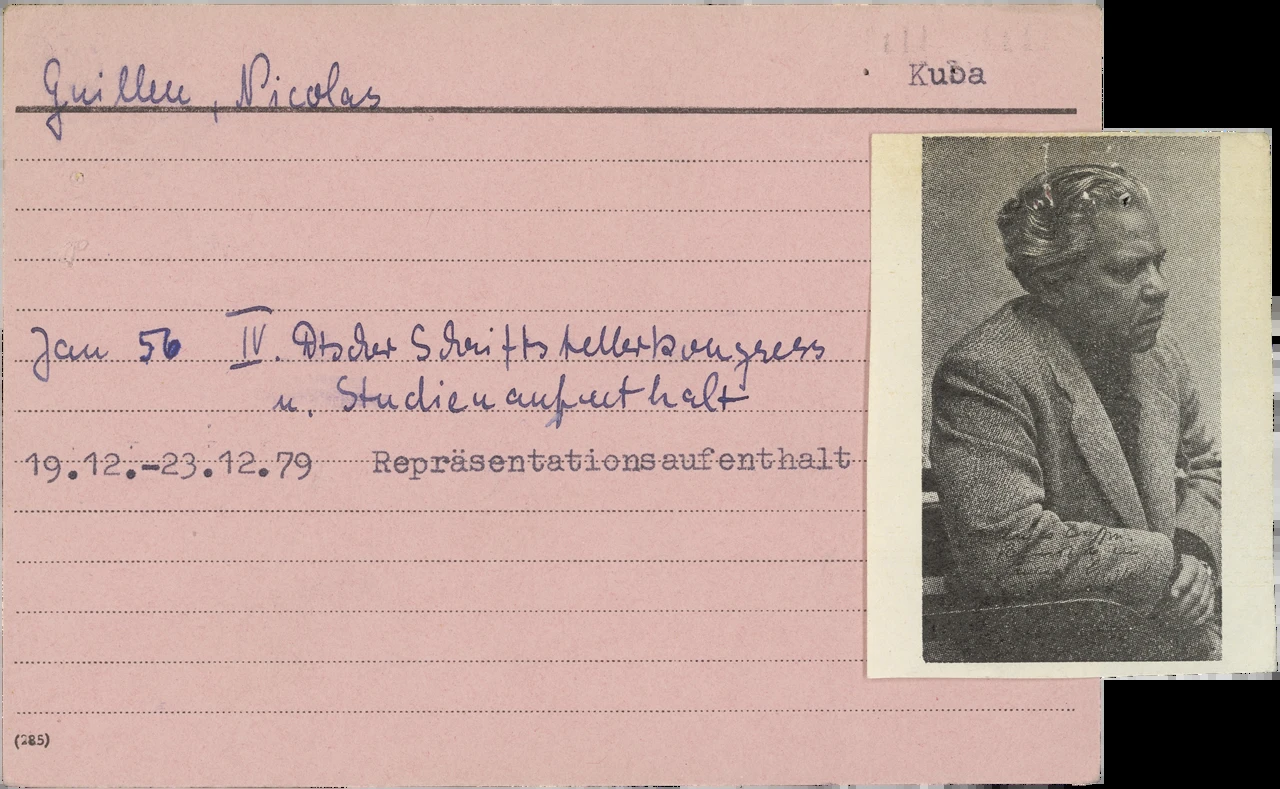 Guillen, Nicolas
Kuba
Jan 56 IV. Dtscher Schriftstellerkongress
u. Studienaufenthalt
19.12.-23.12.79 Repräsentationsaufenthalt
(285)